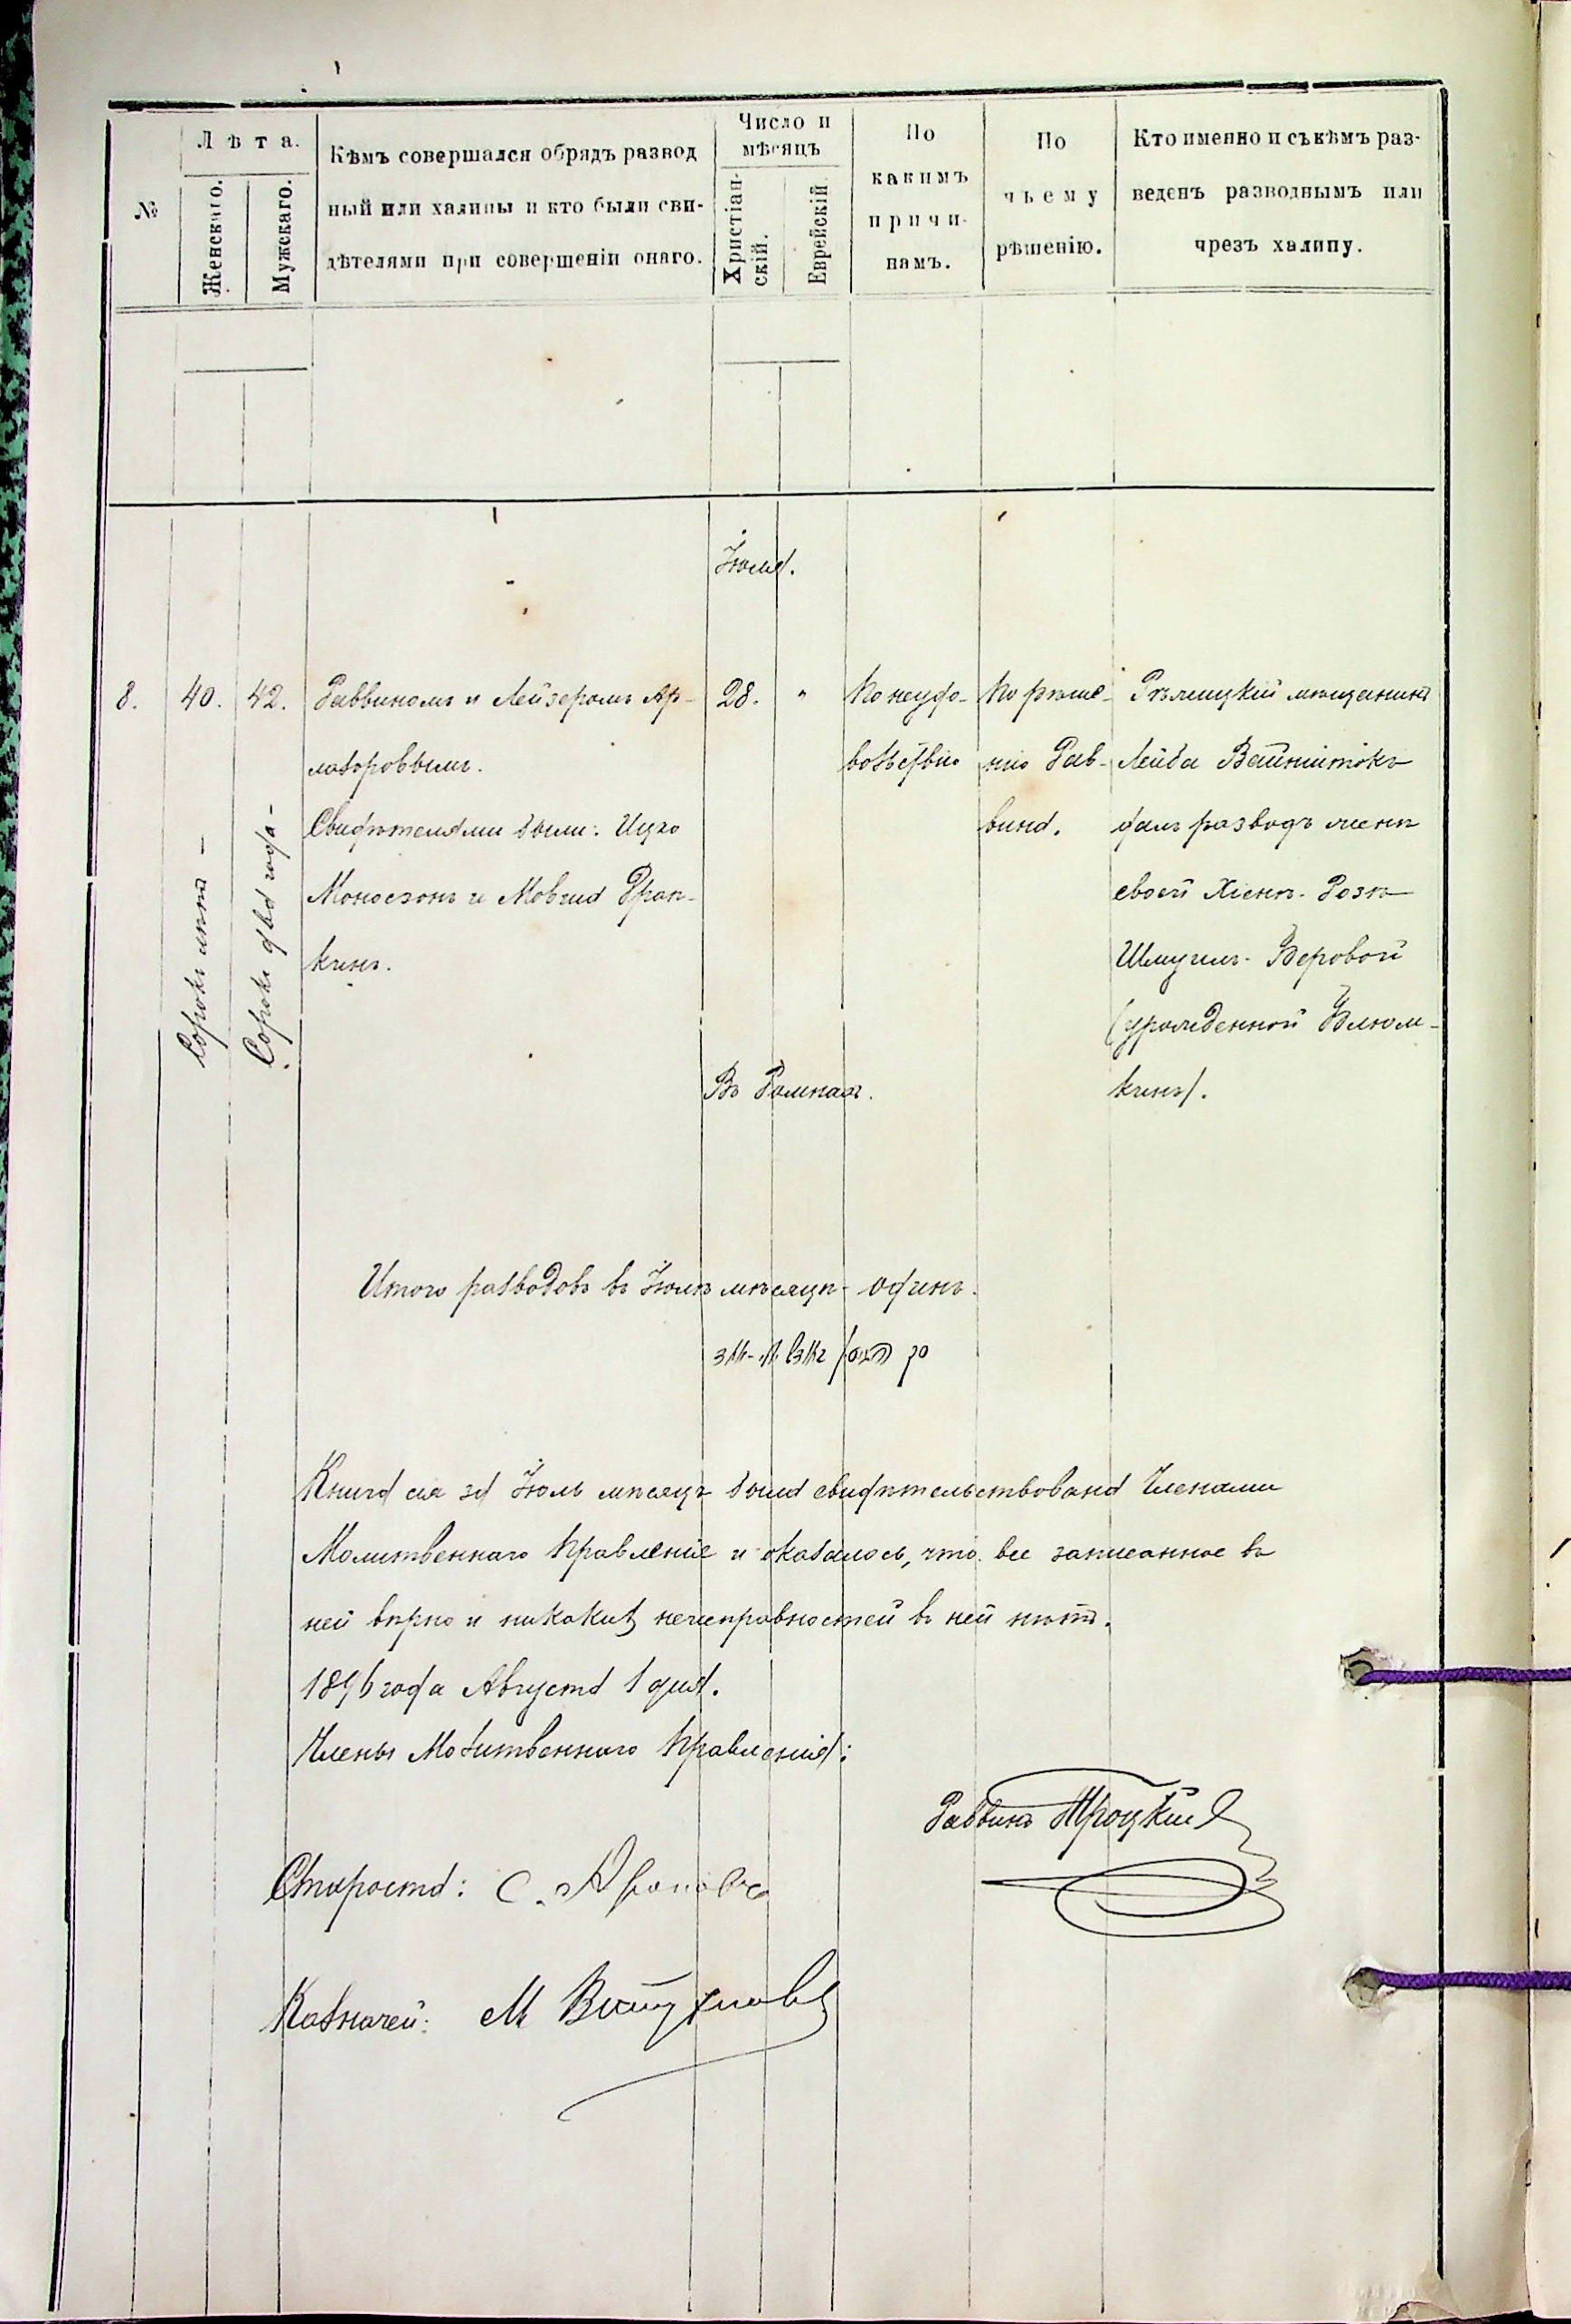 №
Лѣта.
Женскаго.
Мужскаго.
Кѣмъ совершался обрядъ развод
ный или халицы и кто были сви-
дѣтелями при совершеніи онаго.
Число и
мѣсяцъ
Христіан-
скій.
Еврейскій.
По
какимъ
причи-
намъ.
По
чьему
рѣшенію.
Кто именно и съ кѣмъ раз-
веденъ разводнымъ или
чрезъ халицу.
Іюля.
8.
40.
Сорокъ лѣтъ -
42.
Сорокъ два года -
Раввиномъ и Лейзеромъ
Свидѣтелями были: Ицко
Моносзонъ и Мовша Фран-
кинъ.
28.
"
Въ Ромнахъ.
По неудо-
вольствію
По рѣше-
нію Рав-
вина.
Рѣчицкій мѣщанинъ
Лейба Вайнштокъ
далъ разводъ женѣ
своей Хіенѣ-Розѣ
Шмуилъ-Беровой
(урожденной Блюм-
кинъ).
Итого разводовъ въ Іюлѣ мѣсяцѣ - одинъ.
Книга сія за Іюль мѣсяцъ была свидѣтельствована Членами
Молитвеннаго Правленія и оказалось, что все записанное въ
ней вѣрно и никакихъ неисправностей въ ней нѣтъ.
1896 года Августа 1 дня.
Члены Молитвеннаго Правленія:
Раввинъ Троцкій
Староста: С. Ароновъ
Казначей: М